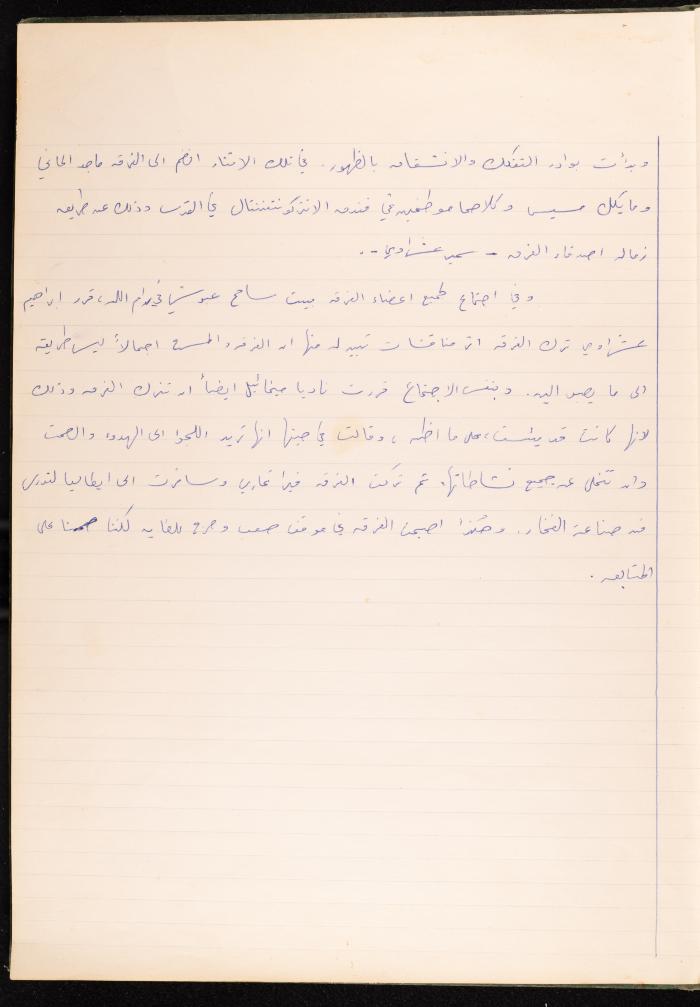 وبدأت بوادر التفكك والانشقاق بالظهور. في تلك الاثناء انضم الى الفرقه ماجد الماني
ومايكل مسيس وكلاهما موظفين في فندق الانتركونتننتال في القدس وذلك عن طريق
اصدقاء الفرقه - سمير عشراوي -.
وفي اجتماع لجميع اعضاء الفرقه ببيت سامح عبوشي في رام الله، قرر ابراهيم
عشراوي ترك الفرقه اثر مناقشات تبين له منها ان الفرقه والمسرح اجمالاً ليس طريقه
الى ما يصبو اليه. وبنفس الاجتماع قررت ناديا ميخائيل ايضاً ان تترك الفرقه وذلك
لانها كانت قد يئست، على ما اظن، وقالت في حينها انها تريد اللجوا الى الهدوء والصمت
وان تتخلى عن جميع نشاطاتها. ثم تركت الفرقه فيرا تماري وسافرت الى ايطاليا لتدرس
فن صناعة الفخار. وهكذا اصبحت الفرقه في موقف صعب وحرج للغايه لكننا صممنا على
المتابعه.